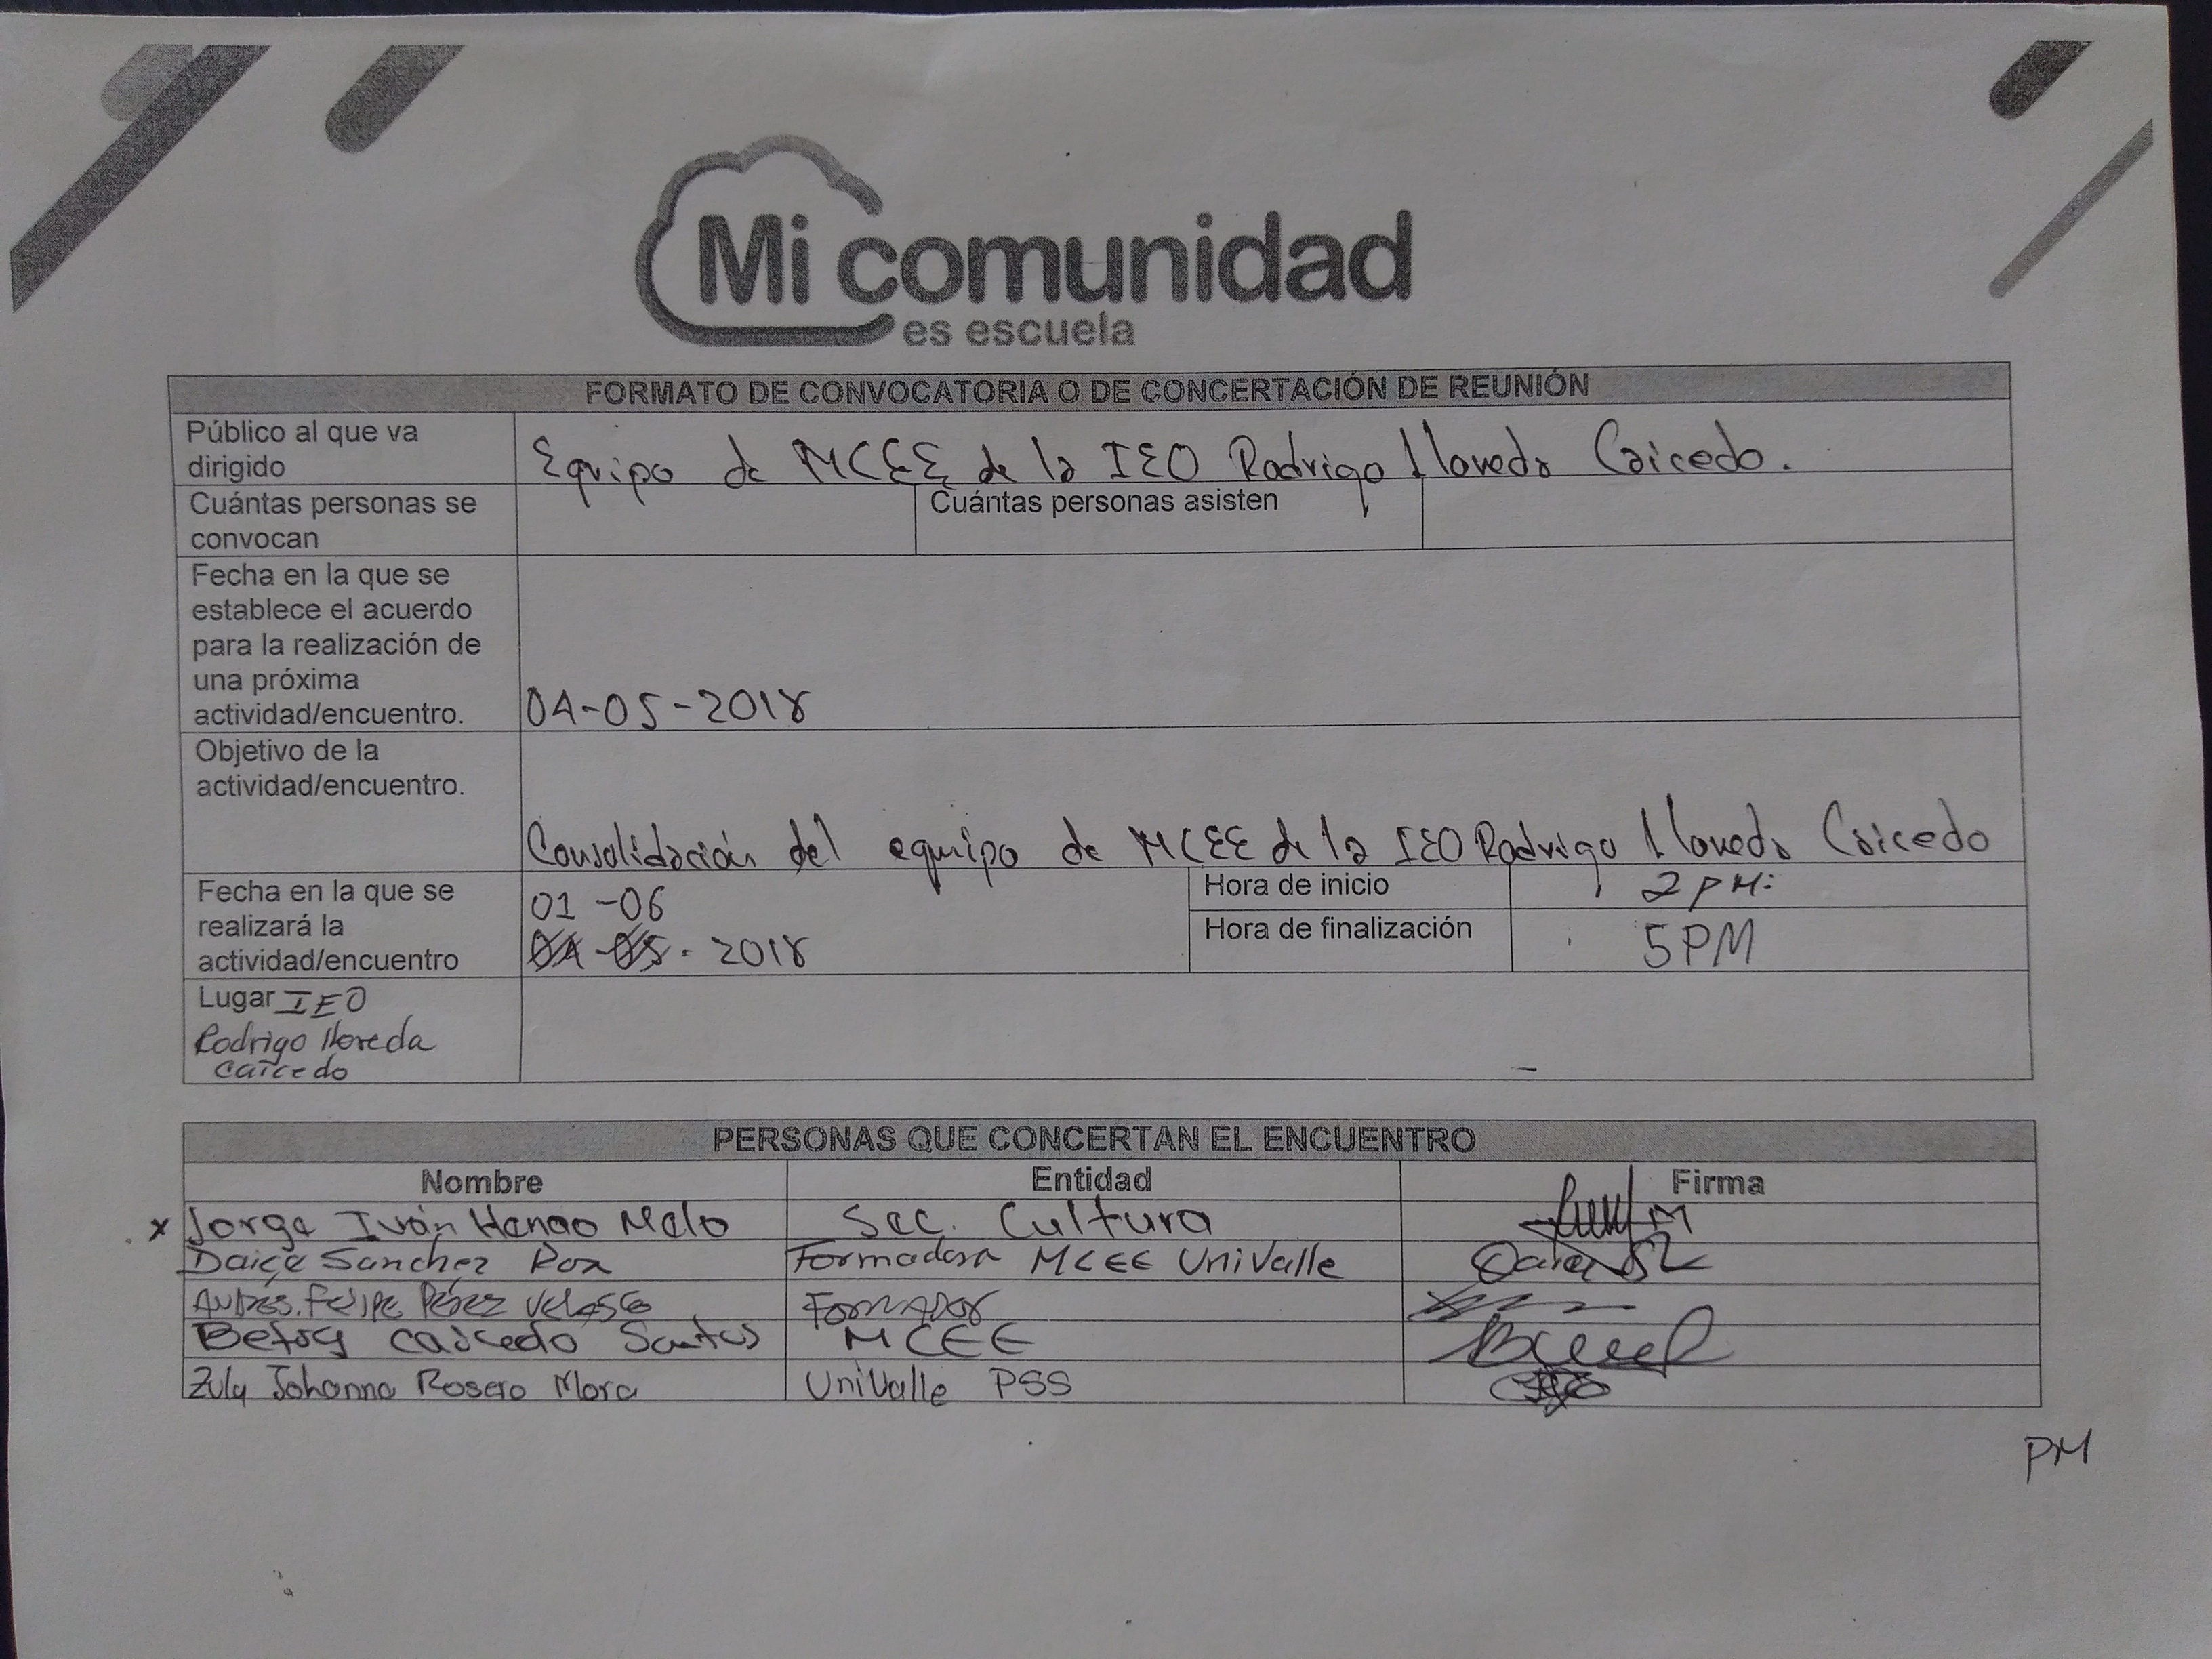 Mi comunidad
es escuela
FORMATO DE CONVOCATORIA O DE CONCERTACIÓN DE REUNIÓN
Público al que va
dirigido
Equipo de MCEE de la IEO Rodrigo Lloreda Caicedo.
Cuántas personas se
convocan
Cuántas personas asisten
Fecha en la que se
establece el acuerdo
para la realización de
una próxima
actividad/encuentro.
04-05-2018
Objetivo de la
actividad/encuentro.
Consolidación del equipo de MCEE de la IEO Rodrigo Lloreda Caicedo
Fecha en la que se
realizará la
actividad/encuentro
01-06
04-05-2018
Hora de inicio
2 PM:
Hora de finalización
5PM
Lugar IEO
Rodrigo lloreda
Caicedo
PERSONAS QUE CONCERTAN EL ENCUENTRO
Nombre Entidad Firma
x Jorge Iván Henao Melo Sec. Cultura
Sanchez Formadora MCEE UniValle
Andrés. Felipe Pérez Velasco Formador
Betsy Caicedo Santos MCEE
Johanna Rosero Mora UniValle PSS
PM